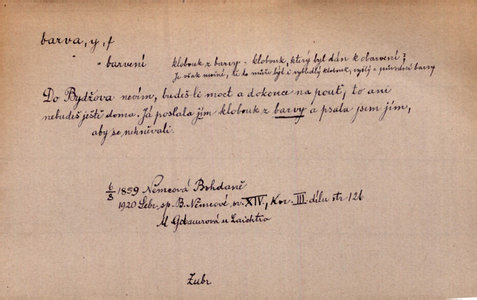 barva, y, f
" barvení klobouk z barvy – klobouk, který byl dán k obarvení?
Je však možné, že to může být i vybledlý klobouk, vyšlý z původní barvy
Do Bydžova nevím, budeš-li moct a dokonce na pouť, to ani
nebudeš ještě doma. Já poslala jím klobouk z barvy a psala jsem jim,
aby se nehněvali.
6/8 1859 Němcová Bohdaně
1920 Sebr. sp. B. Němcové, sv. XIV, Kor. III. dílu str 126
M Gebauerová u Laichtra
Zubr